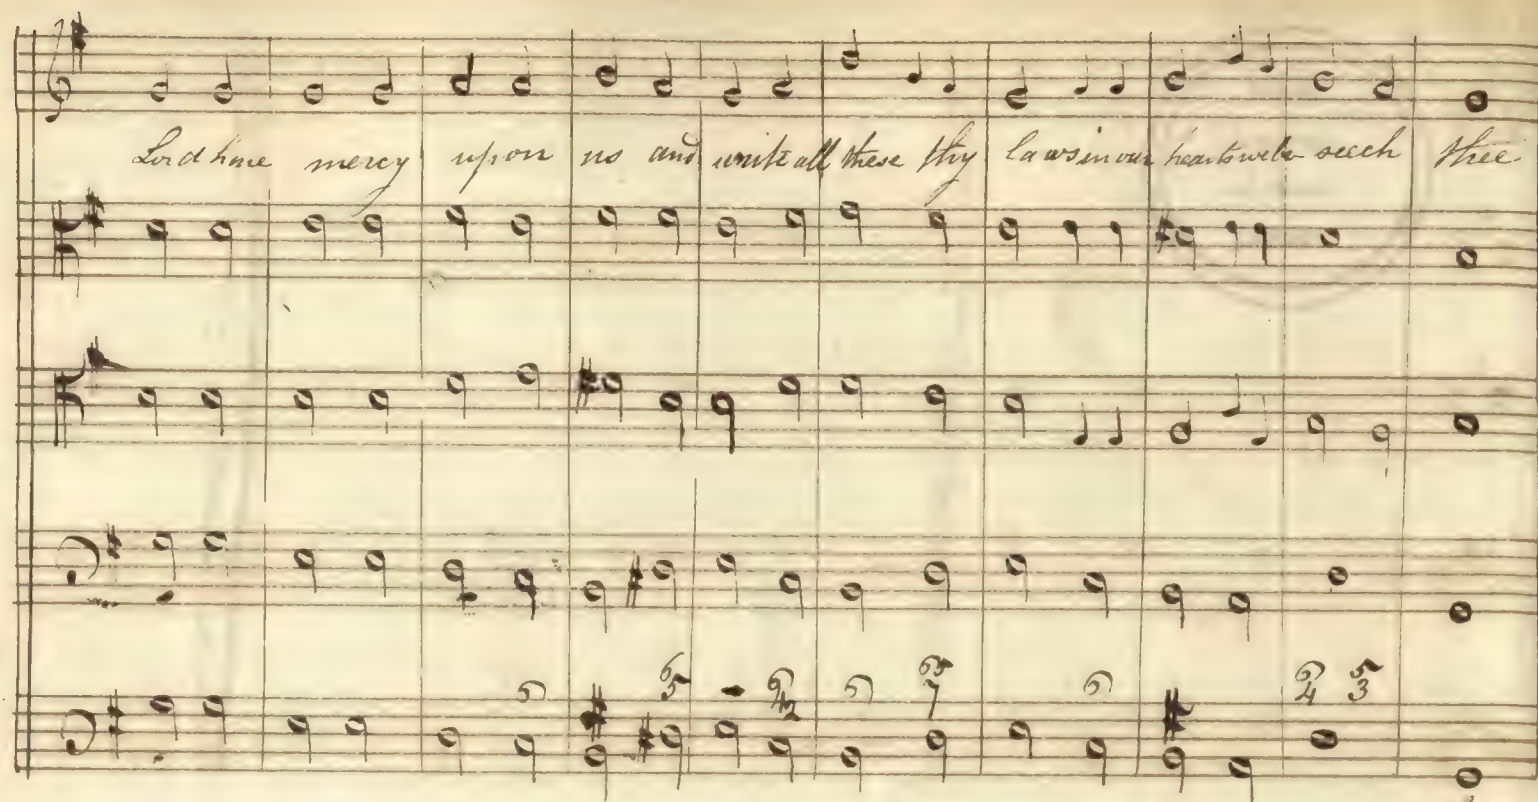 Lord have mercy upon us and write all these thy laws in our hearts we be seech thee
6 6 5 6 4 2 6 6 5 6 6 4 5 3